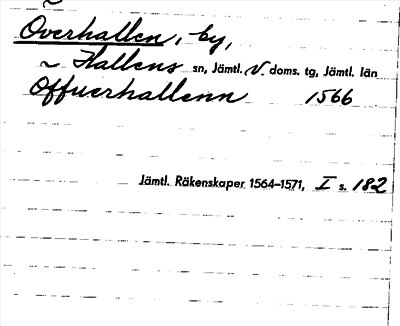 Överhallen, by,
~ Hallens sn, Jämtl. V. doms. tg, Jämtl. län
Offuerhallenn 1566
Jämtl. Räkenskaper 1564–1571, I s. 182